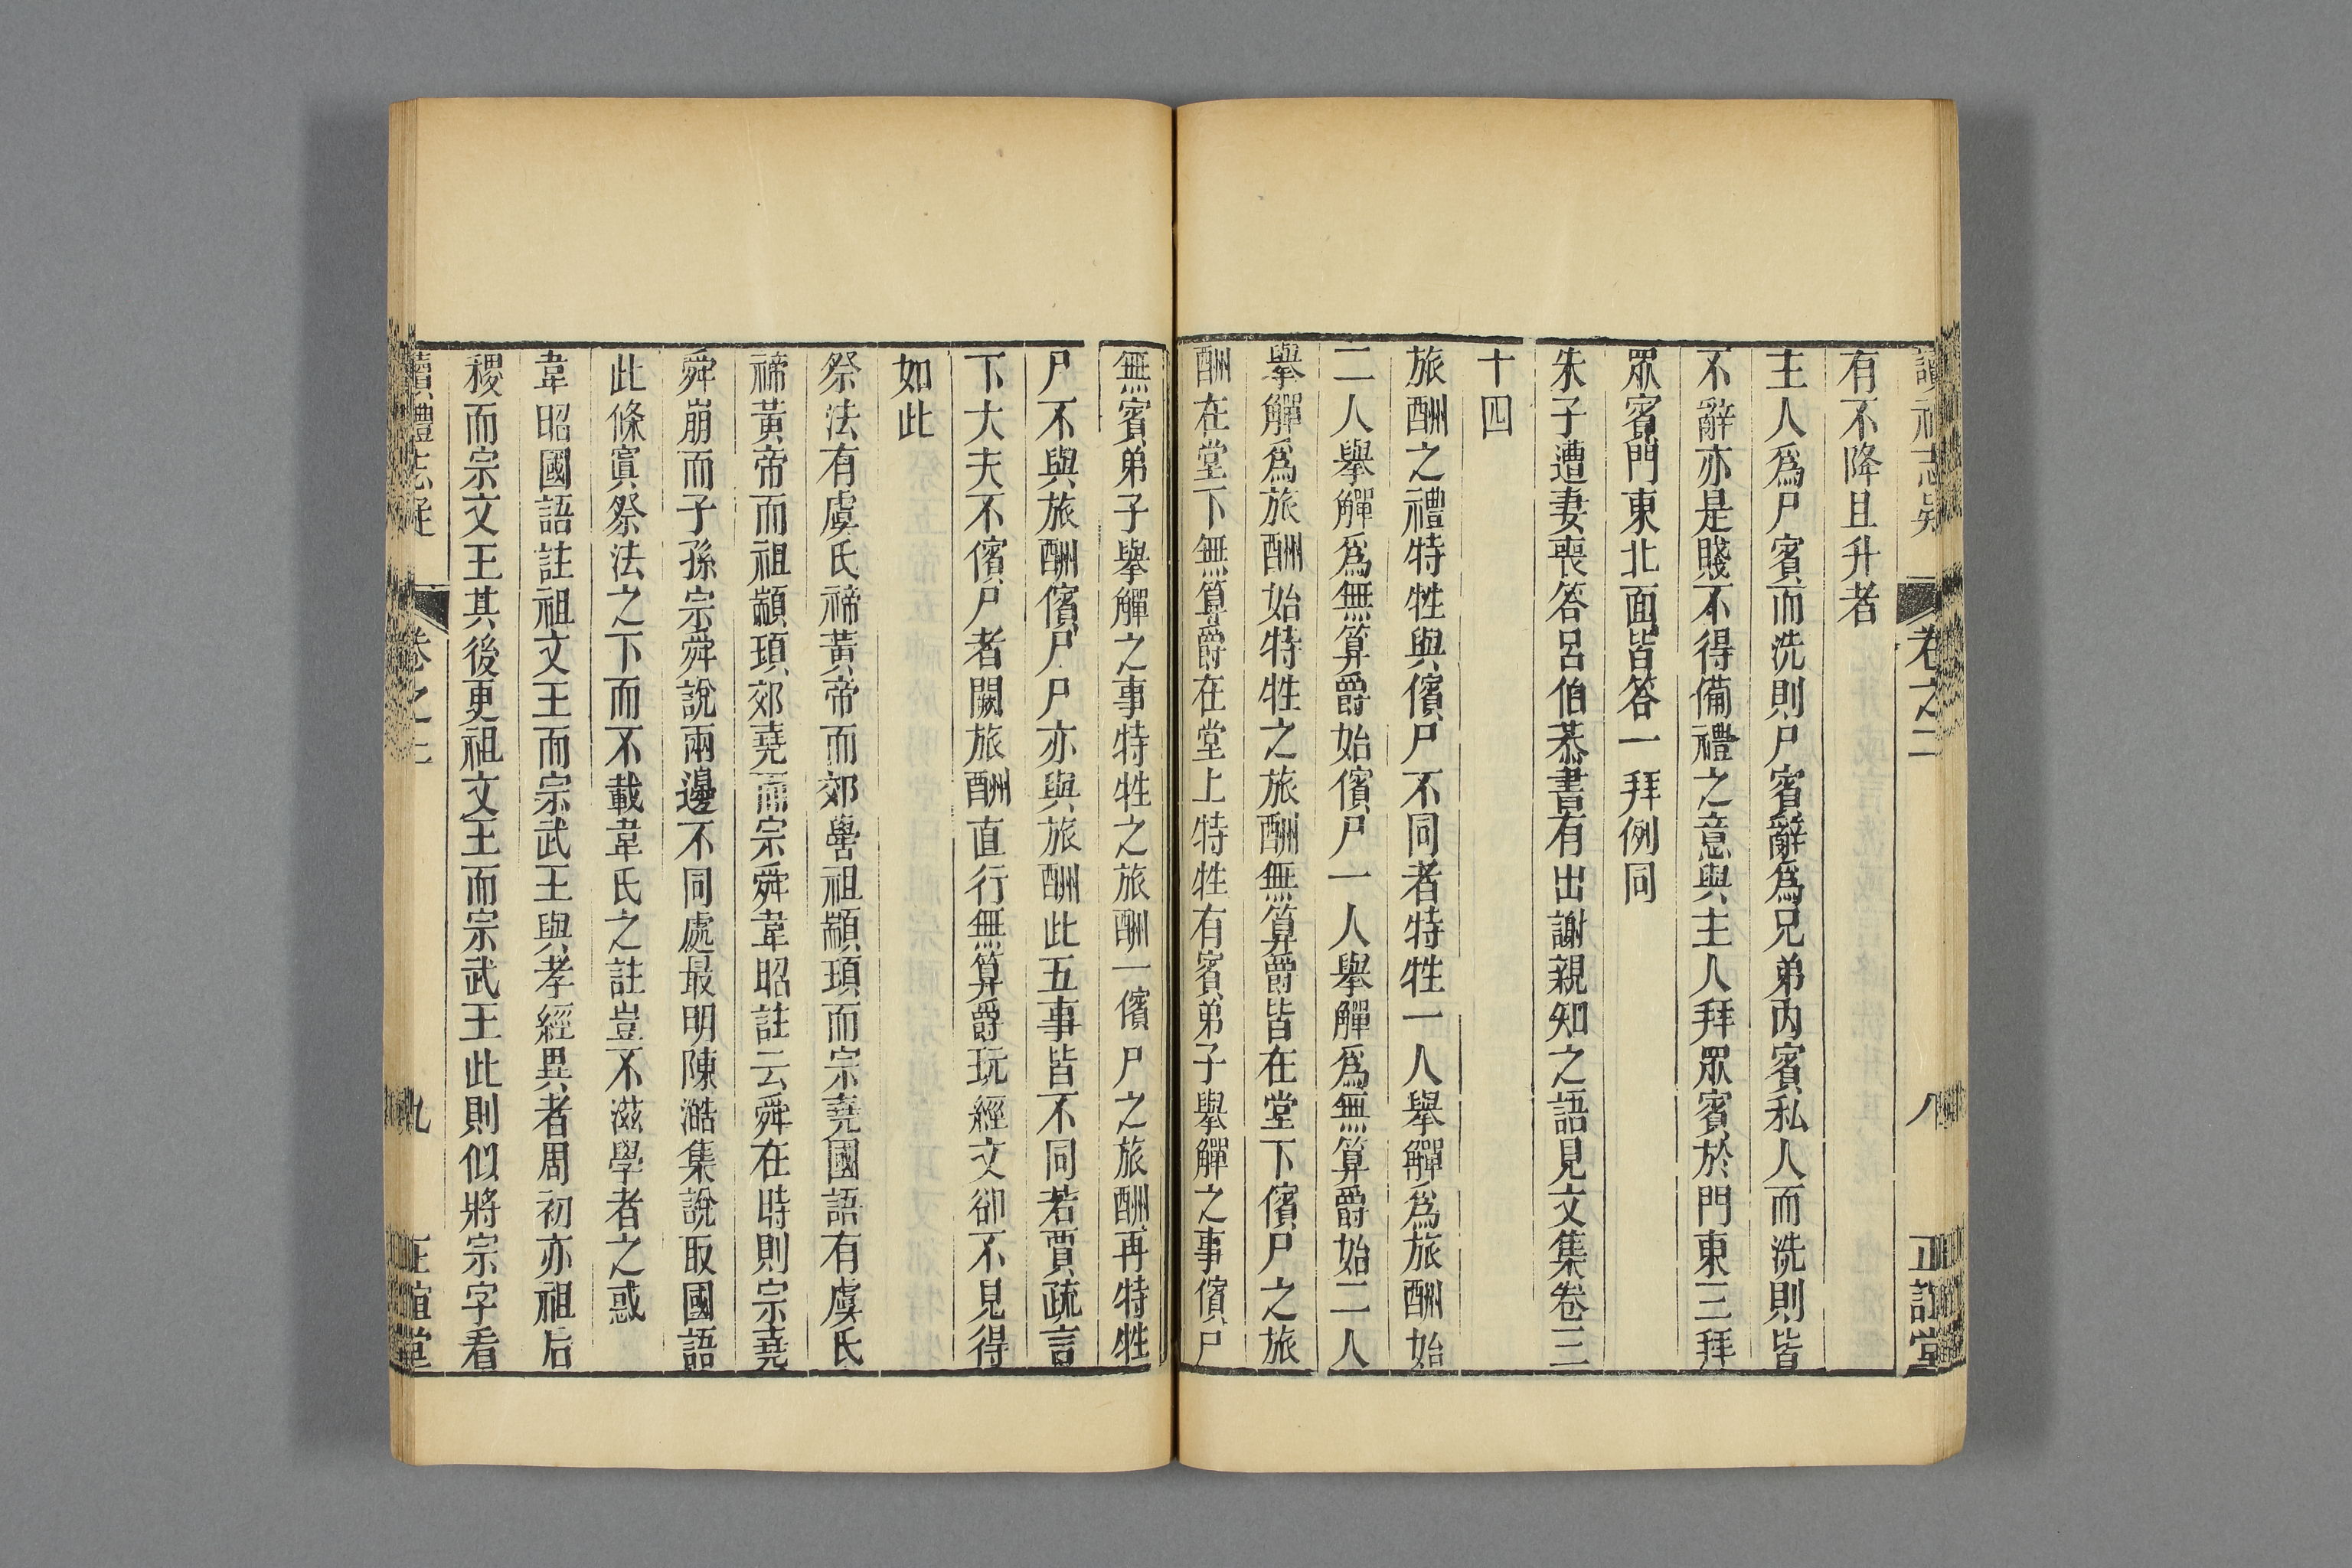 讀禮志疑 卷之二 八 正誼堂
有不降且升者
主人爲尸賓而洗則尸賓辭爲兄弟内賓私人而洗則皆
不辭亦是賤不得備禮之意與主人拜眾賓於門東三拜
眾賓門東北面皆答一拜例同
朱子遭妻喪答呂伯恭書有出謝親知之語見文集卷三
十四
旅酬之禮特牲與儐尸不同者特牲一人舉觶爲旅酬始
二人舉觶爲無算爵始儐尸一人舉觶爲無算爵始二人
舉觶爲旅酬始特牲之旅酬無算爵皆在堂下儐尸之旅
酬在堂下無算爵在堂上特牲有賓弟子舉觶之事儐尸
無賓弟子舉觶之事特牲之旅酬一儐尸之旅酬再特牲
尸不與旅酬儐尸尸亦與旅酬此五事皆不同若賈疏言
下大夫不儐尸者闕旅酬直行無算爵玩經文卻不見得
如此
祭法有虞氏禘黃帝而郊嚳祖顓頊而宗堯國語有虞氏
禘黃帝而祖顓頊郊堯而宗舜韋昭註云舜在時則宗堯
舜崩而子孫宗舜說兩邊不同處最明陳澔集說取國語
此條寘祭法之下而不載韋氏之註豈不滋學者之惑
韋昭國語註祖文王而宗武王與孝經異者周初亦祖后
稷而宗文王其後更祖文王而宗武王此則似將宗字看
讀禮志疑 卷之二 九 正誼堂